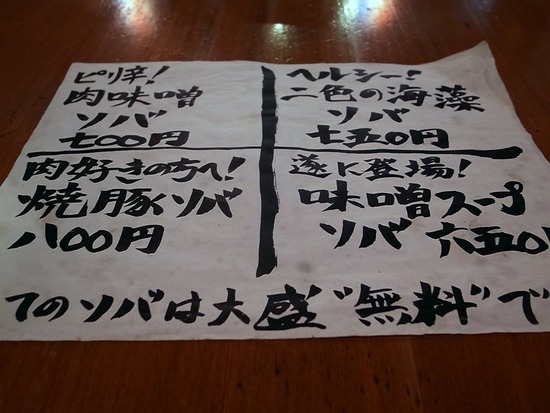 ピリ辛!
肉味噌
ソバ
七00円
ヘルシー!
二色の海藻
ソバ
七五0円
肉好きの方へ!
焼豚ソバ
八00円
遂に登場!
味噌スープ
ソバ 六五0
てのソバは大盛"無料"で